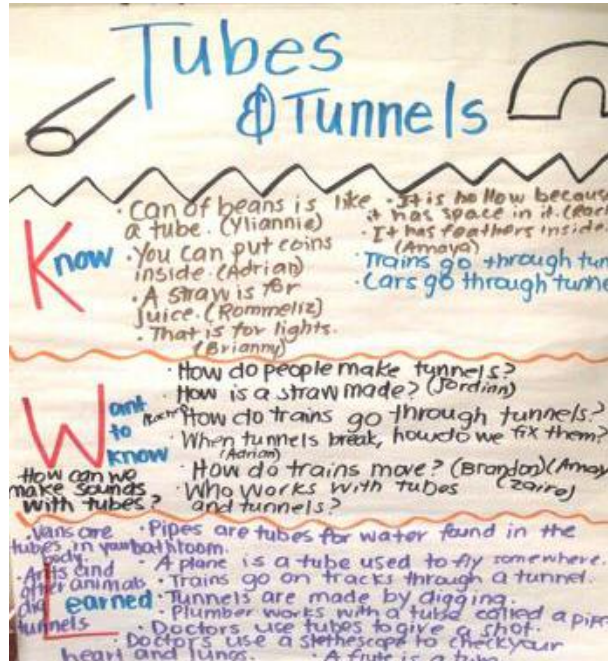 Tubes
& Tunnels
Know
· Can of beans is like
a tube. (Yliannie)
· You can put coins
inside. (Adrian)
· A straw is for
juice. (Rommeliz)
· That is for lights.
(Brianny)
· It is hollow becaus
it has space in it.
· It has feathers inside.
(Amaya)
· Trains go through tun
· Cars go through tunne
Want
to
know
· How do people make tunnels?
· How is a straw made? (Jordian)
· How do trains go through tunnels?
· When tunnels break, how do we fix them?
(Adrian)
· How do trains move? (Brandon) (Amay
· Who works with tubes
and tunnels? (Zaira)
How can we
make sounds
with tubes?
Learned
· Vans are
tubes in your
body.
· Ants and
other animals
dig
tunnels
· Pipes are tubes for water found in the
bathroom.
· A plane is a tube used to fly somewhere.
· Trains go on tracks through a tunnel.
· Tunnels are made by digging.
· Plumber works with a tube called a pipe
· Doctors use tubes to give a shot.
· Doctors use a stethescope to check your
heart and lungs. · A flute is a tube